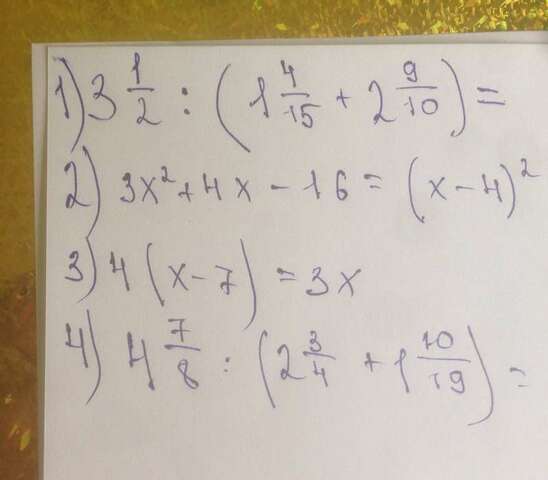 1) 3 1/2 : (1 4/15 + 2 9/10) =
2) 3x² + 4x - 16 = (x - 4)²
3) 4(x - 7) = 3x
4) 4 7/8 : (2 3/4 + 1 10/19) =